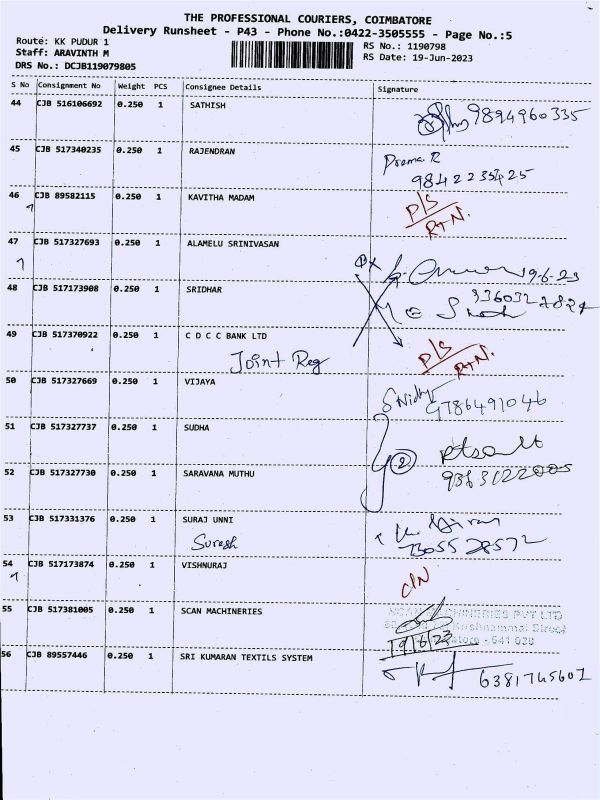 THE PROFESSIONAL COURIERS, COIMBATORE
Delivery Runsheet - P43 - Phone No.:0422-3505555 - Page No.:5
Route: KK PUDUR 1
RS No.: 1190798
Staff: ARAVINTH M
RS Date: 19-Jun-2023
DRS No.: DCJB119079805
S No Consignment No Weight PCS Consignee Details Signature
44 CJB 516106692 0.250 1 SATHISH 9894960335
45 CJB 517340235 0.250 1 RAJENDRAN Prema R
9842235425
46 CJB 89582115 0.250 1 KAVITHA MADAM P/S
RTN.
47 CJB 517327693 0.250 1 ALAMELU SRINIVASAN
19-6-23
48 CJB 517173908 0.250 1 SRIDHAR
49 CJB 517370922 0.250 1 C D C C BANK LTD P/S
Joint Reg RTN.
50 CJB 517327669 0.250 1 VIJAYA
9786491046
51 CJB 517327737 0.250 1 SUDHA
2
52 CJB 517327730 0.250 1 SARAVANA MUTHU
53 CJB 517331376 0.250 1 SURAJ UNNI
Suresh
54 CJB 517173874 0.250 1 VISHNURAJ
C/N
55 CJB 517381005 0.250 1 SCAN MACHINERIES SCAN MACHINERIES PVT LTD
Krishnammal Street
19/6/23
56 CJB 89557446 0.250 1 SRI KUMARAN TEXTILS SYSTEM
6381745607